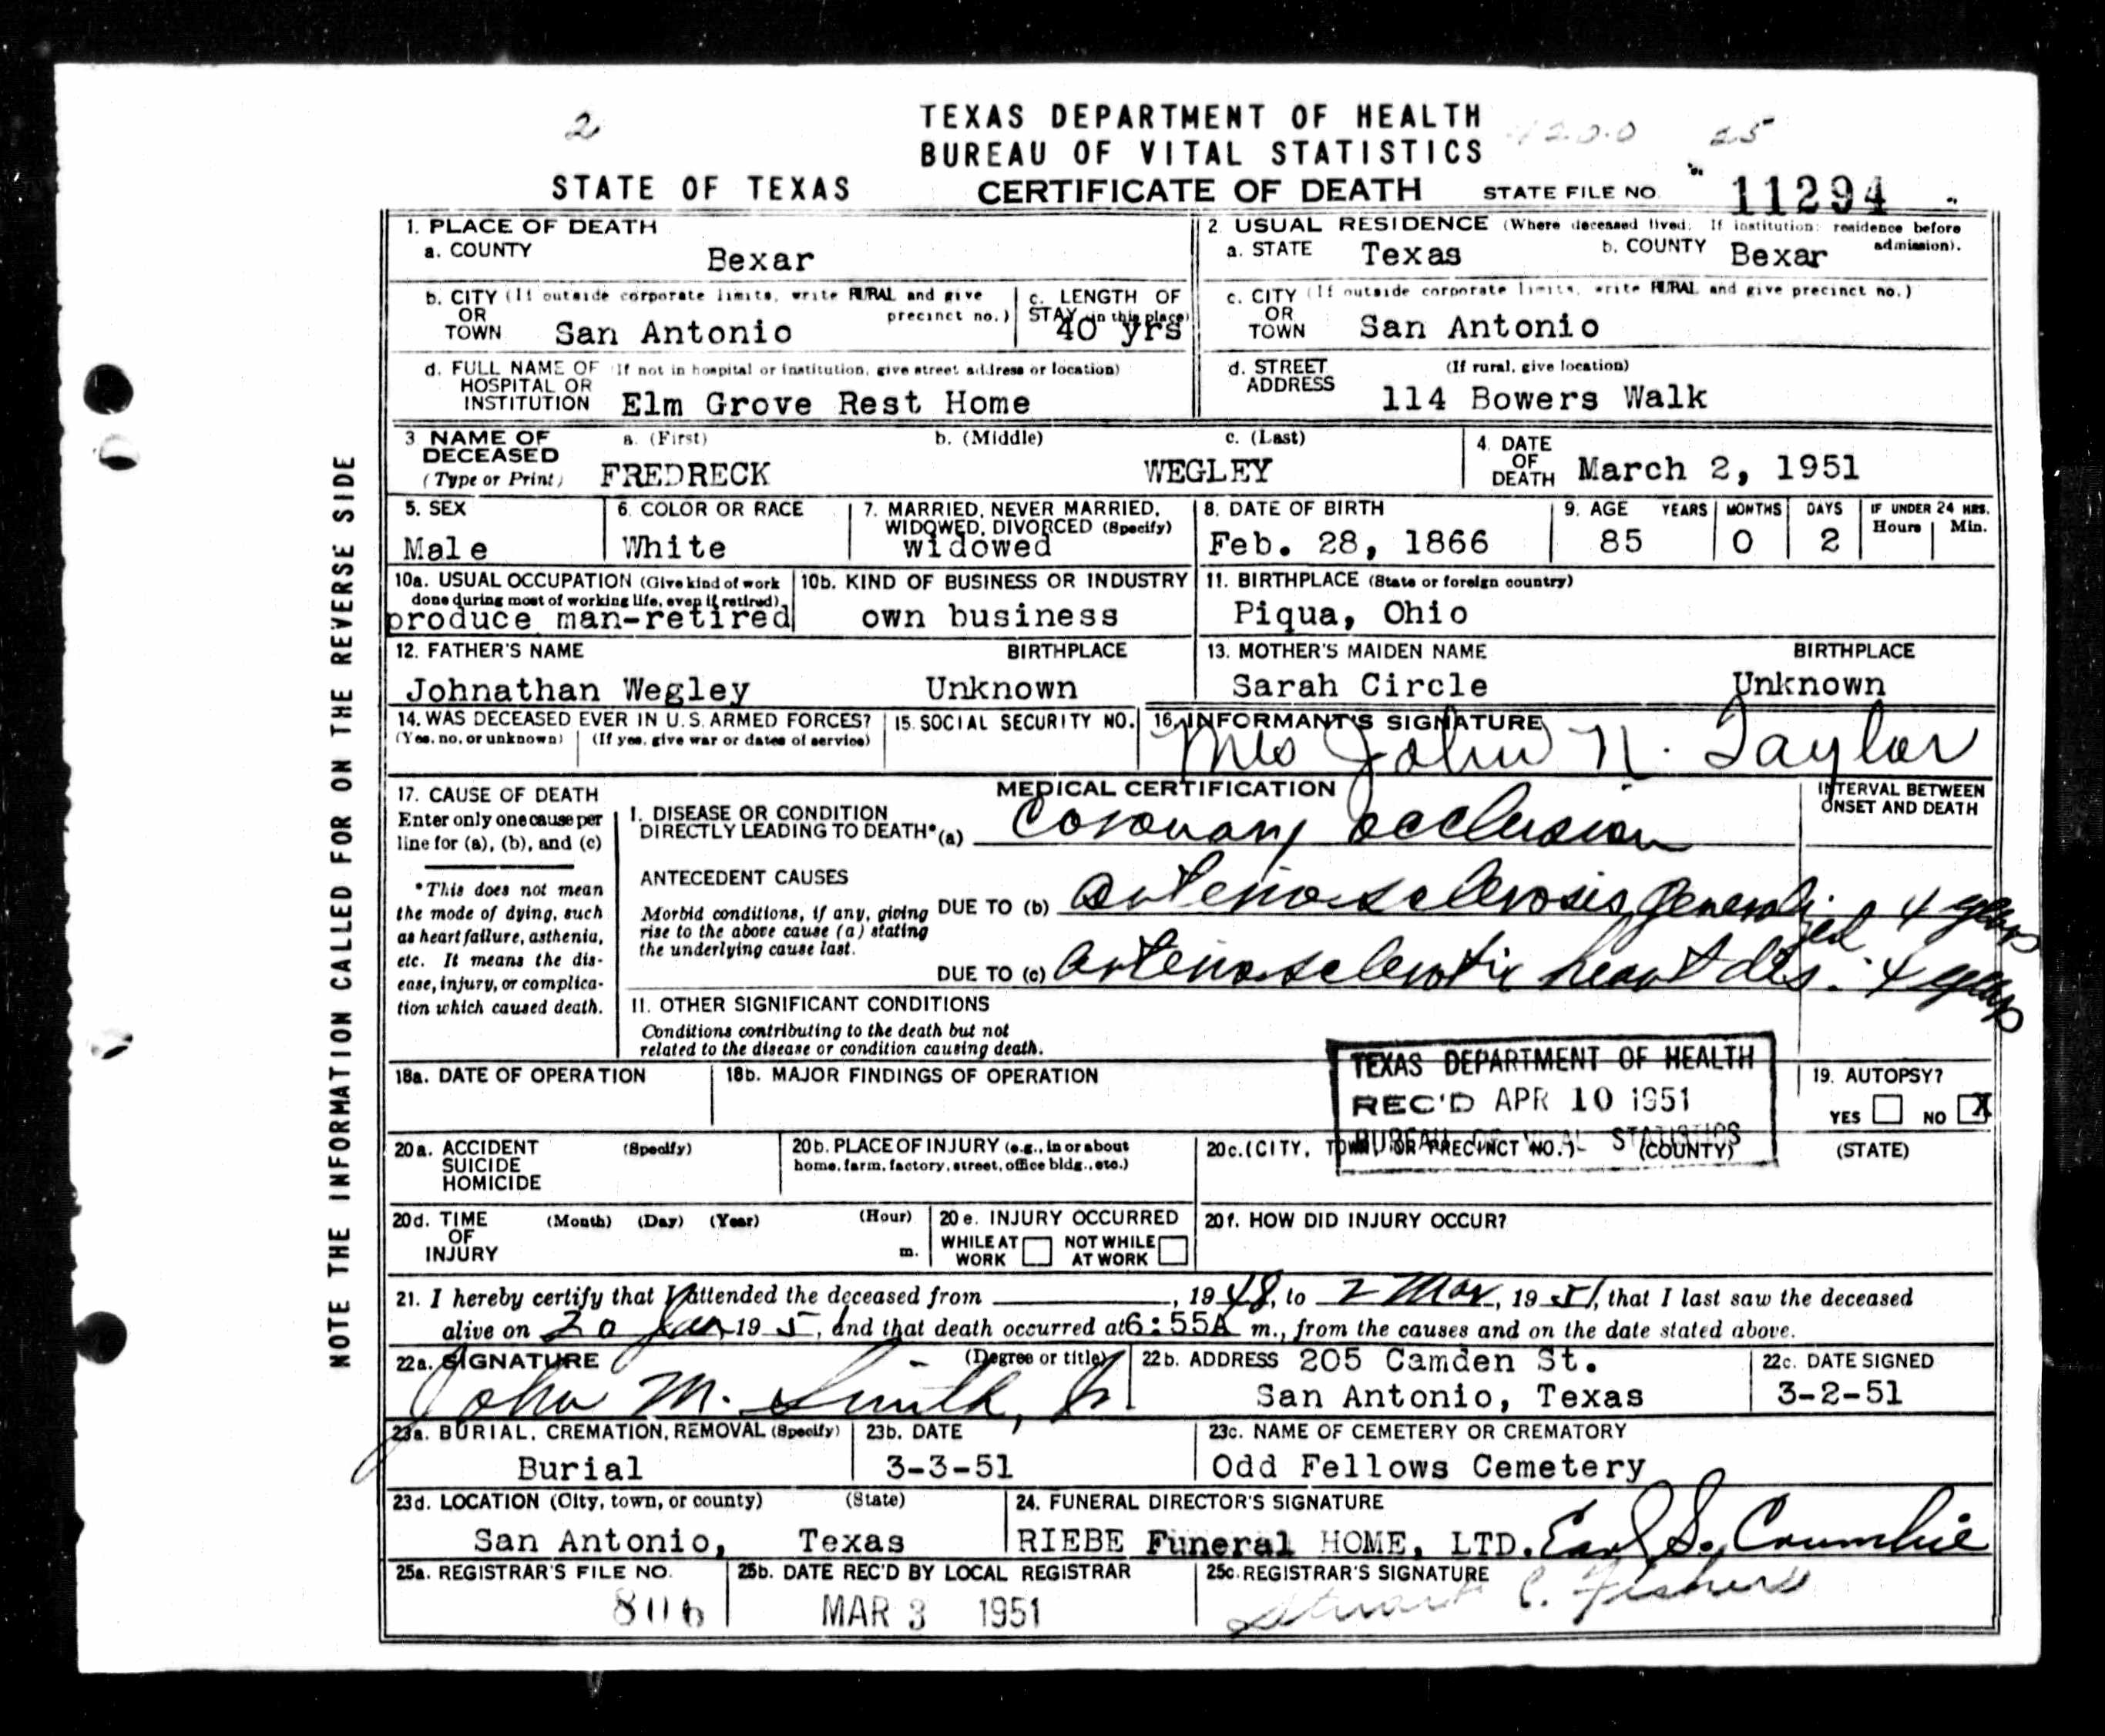 2
4200 25
TEXAS DEPARTMENT OF HEALTH
BUREAU OF VITAL STATISTICS
STATE OF TEXAS CERTIFICATE OF DEATH STATE FILE NO. 11294
NOTE THE INFORMATION CALLED FOR ON THE REVERSE SIDE
1. PLACE OF DEATH
a. COUNTY Bexar
2. USUAL RESIDENCE (Where deceased lived. If institution: residence before admission).
a. STATE Texas b. COUNTY Bexar
b. CITY (If outside corporate limits, write RURAL and give precinct no.)
OR
TOWN San Antonio
c. LENGTH OF
STAY (in this place)
40 yrs
c. CITY (If outside corporate limits, write RURAL and give precinct no.)
OR
TOWN San Antonio
d. FULL NAME OF (If not in hospital or institution, give street address or location)
HOSPITAL OR
INSTITUTION Elm Grove Rest Home
d. STREET (If rural, give location)
ADDRESS 114 Bowers Walk
3 NAME OF a. (First) b. (Middle) c. (Last)
DECEASED
(Type or Print) FREDRECK WEGLEY
4. DATE
OF
DEATH March 2, 1951
5. SEX
Male
6. COLOR OR RACE
White
7. MARRIED, NEVER MARRIED,
WIDOWED, DIVORCED (Specify)
widowed
8. DATE OF BIRTH
Feb. 28, 1866
9. AGE YEARS MONTHS DAYS IF UNDER 24 HRS.
Hours Min.
85 0 2
10a. USUAL OCCUPATION (Give kind of work
done during most of working life, even if retired)
produce man-retired
10b. KIND OF BUSINESS OR INDUSTRY
own business
11. BIRTHPLACE (State or foreign country)
Piqua, Ohio
12. FATHER'S NAME BIRTHPLACE
Johnathan Wegley Unknown
13. MOTHER'S MAIDEN NAME BIRTHPLACE
Sarah Circle Unknown
14. WAS DECEASED EVER IN U.S. ARMED FORCES?
(Yes, no, or unknown) (If yes, give war or dates of service)
15. SOCIAL SECURITY NO.
16. INFORMANT'S SIGNATURE
Mrs John N. Taylor
17. CAUSE OF DEATH
Enter only one cause per
line for (a), (b), and (c)
*This does not mean
the mode of dying, such
as heart failure, asthenia,
etc. It means the dis-
ease, injury, or complica-
tion which caused death.
MEDICAL CERTIFICATION
INTERVAL BETWEEN
ONSET AND DEATH
I. DISEASE OR CONDITION
DIRECTLY LEADING TO DEATH* (a) Coronary occlusion
ANTECEDENT CAUSES
Morbid conditions, if any, giving
rise to the above cause (a) stating
the underlying cause last.
DUE TO (b) arteriosclerosis generalized 4 years
DUE TO (c) arteriosclerotic heart dis. 4 years
II. OTHER SIGNIFICANT CONDITIONS
Conditions contributing to the death but not
related to the disease or condition causing death.
TEXAS DEPARTMENT OF HEALTH
REC'D APR 10 1951
BUREAU OF VITAL STATISTICS
18a. DATE OF OPERATION
18b. MAJOR FINDINGS OF OPERATION
19. AUTOPSY?
YES NO X
20a. ACCIDENT (Specify)
SUICIDE
HOMICIDE
20b. PLACE OF INJURY (e.g., in or about
home, farm, factory, street, office bldg., etc.)
20c. (CITY, TOWN, OR PRECINCT NO.) (COUNTY) (STATE)
20d. TIME (Month) (Day) (Year) (Hour)
OF
INJURY m.
20e. INJURY OCCURRED
WHILE AT WORK NOT WHILE AT WORK
20f. HOW DID INJURY OCCUR?
21. I hereby certify that I attended the deceased from , 1948, to 2 Mar, 1951, that I last saw the deceased
alive on 20 Jan 195 , and that death occurred at 6:55A m., from the causes and on the date stated above.
22a. SIGNATURE (Degree or title)
John M. Smith, Jr
22b. ADDRESS 205 Camden St.
San Antonio, Texas
22c. DATE SIGNED
3-2-51
23a. BURIAL, CREMATION, REMOVAL (Specify)
Burial
23b. DATE
3-3-51
23c. NAME OF CEMETERY OR CREMATORY
Odd Fellows Cemetery
23d. LOCATION (City, town, or county) (State)
San Antonio, Texas
24. FUNERAL DIRECTOR'S SIGNATURE
RIEBE Funeral HOME, LTD. Earl S. Crumbie
25a. REGISTRAR'S FILE NO.
806
25b. DATE REC'D BY LOCAL REGISTRAR
MAR 3 1951
25c. REGISTRAR'S SIGNATURE
Stuart C. Fishers